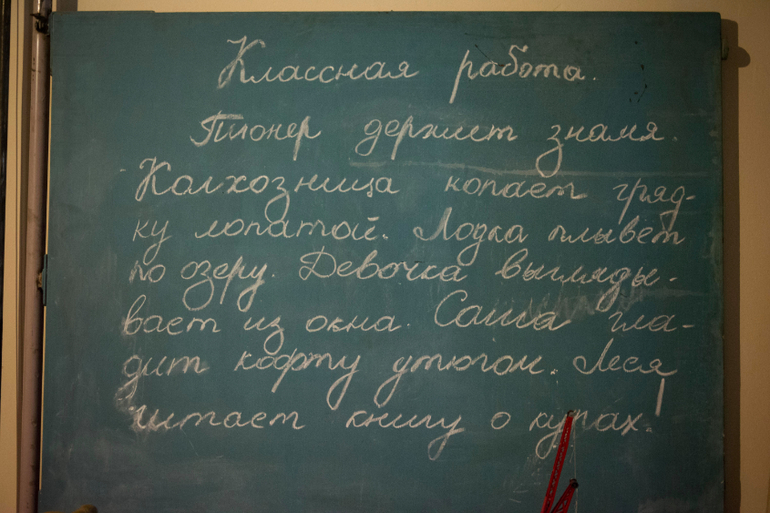 Классная работа.
Пионер держит знамя.
Колхозница копает гряд-
ку лопатой. Лодка плывёт
по озеру. Девочка выгляды-
вает из окна. Саша гла-
дит кофту утюгом. Леся
читает книгу о курах.